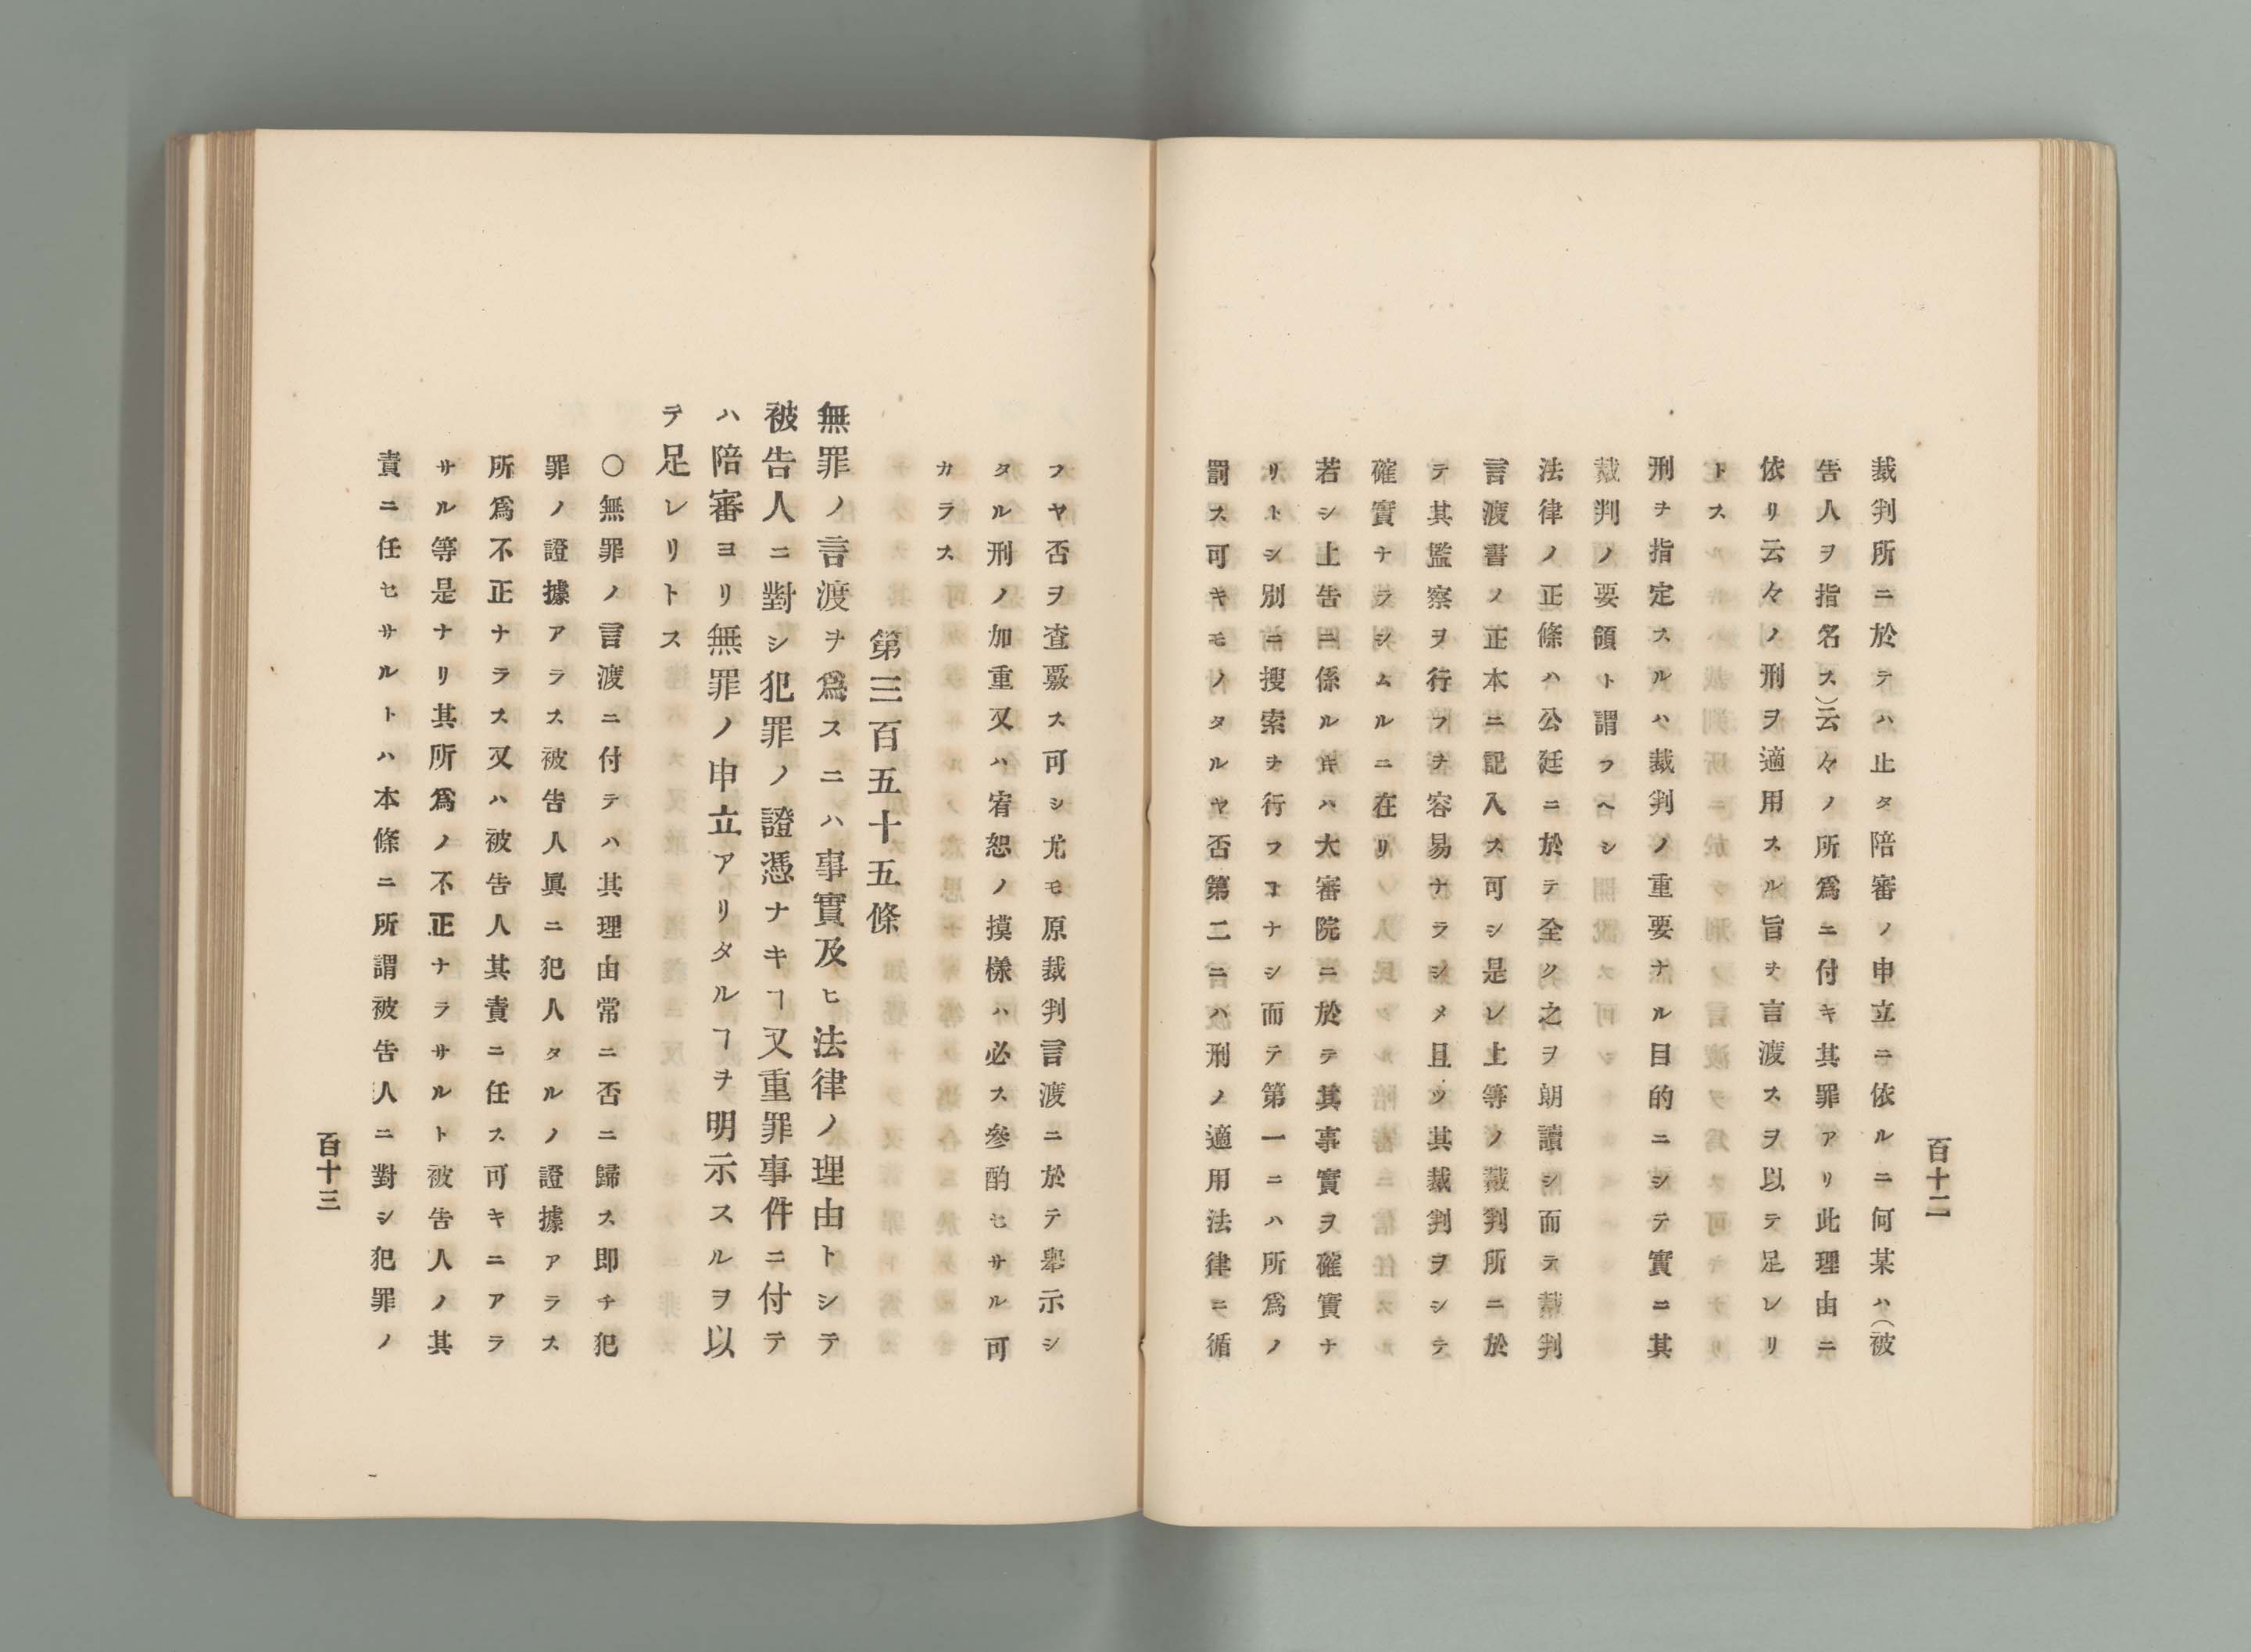 百十二
裁判所ニ於テハ止タ陪審ノ申立ニ依ルニ何某ハ(被
告人ヲ指名ス)云々ノ所爲ニ付キ其罪アリ此理由ニ
依リ云々ノ刑ヲ適用スル旨ヲ言渡スヲ以テ足レリ
トス
刑ヲ指定スルハ裁判ノ重要ナル目的ニシテ實ニ其
裁判ノ要領ト謂フヘシ
法律ノ正條ハ公廷ニ於テ全ク之ヲ朗讀シ而テ裁判
言渡書ノ正本ニ記入ス可シ是レ上等ノ裁判所ニ於
テ其監察ヲ行フヲ容易ナラシメ且ツ其裁判ヲシテ
確實ナラシムルニ在リ
若シ上告ニ係ルキハ大審院ニ於テ其事實ヲ確實ナ
リトシ別ニ搜索ヲ行フヿナシ而テ第一ニハ所爲ノ
罰ス可キモノタルヤ否第二ニハ刑ノ適用法律ニ循
フヤ否ヲ査覈ス可シ尤モ原裁判言渡ニ於テ舉示シ
タル刑ノ加重又ハ宥恕ノ摸樣ハ必ス參酌セサル可
カラス
第三百五十五條
無罪ノ言渡ヲ爲スニハ事實及ヒ法律ノ理由トシテ
被告人ニ對シ犯罪ノ證憑ナキヿ又重罪事件ニ付テ
ハ陪審ヨリ無罪ノ申立アリタルヿヲ明示スルヲ以
テ足レリトス
〇無罪ノ言渡ニ付テハ其理由常ニ否ニ歸ス即チ犯
罪ノ證據アラス被告人眞ニ犯人タルノ證據アラス
所爲不正ナラス又ハ被告人其責ニ任ス可キニアラ
サル等是ナリ其所爲ノ不正ナラサルト被告人ノ其
責ニ任セサルトハ本條ニ所謂被告人ニ對シ犯罪ノ
百十三